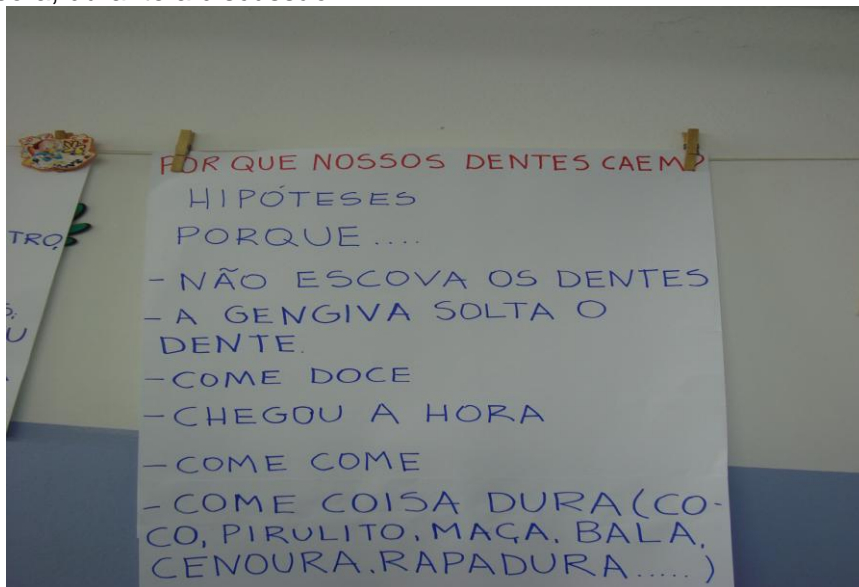 POR QUE NOSSOS DENTES CAEM?
HIPÓTESES
PORQUE....
- NÃO ESCOVA OS DENTES
- A GENGIVA SOLTA O
DENTE.
- COME DOCE
- CHEGOU A HORA
- COME COME
- COME COISA DURA (CO-
CO, PIRULITO, MAÇA, BALA,
CENOURA, RAPADURA.....)
TRO,
U